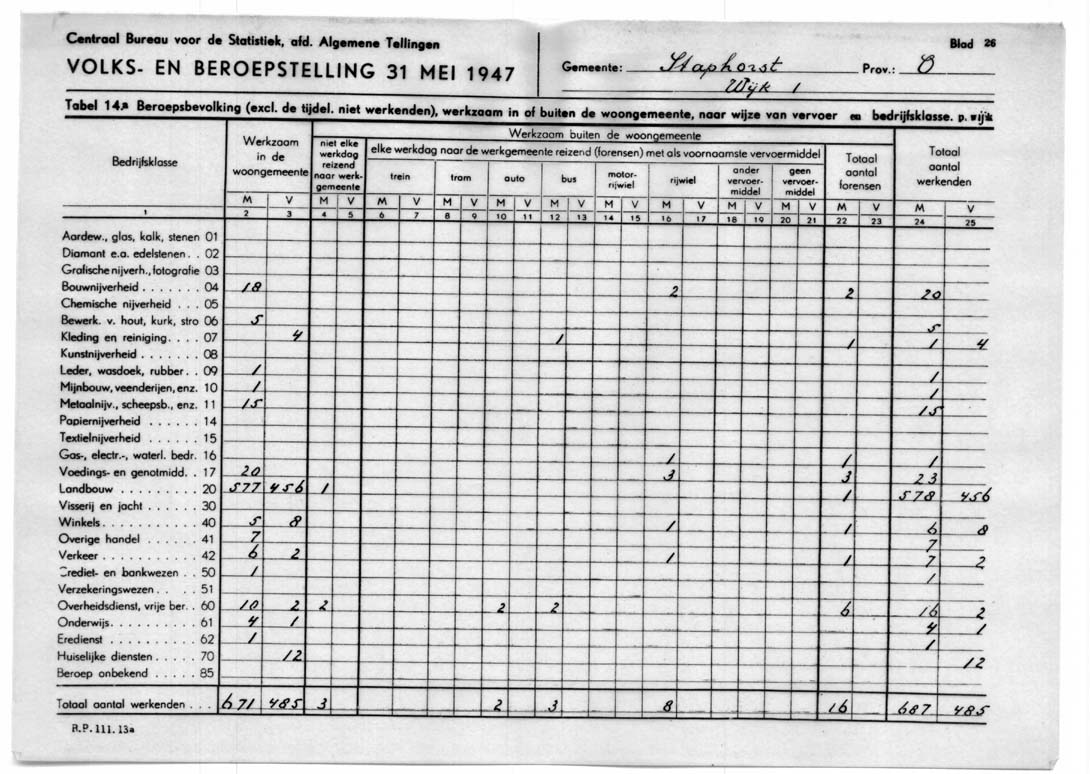 Centraal Bureau voor de Statistiek, afd. Algemene Tellingen
Blad 26
VOLKS- EN BEROEPSTELLING 31 MEI 1947
Gemeente: Staphorst Prov.: O
Wijk 1
Tabel 14.a Beroepsbevolking (excl. de tijdel. niet werkenden), werkzaam in of buiten de woongemeente, naar wijze van vervoer en bedrijfsklasse. p. wijk
Bedrijfsklasse
Werkzaam in de woongemeente
Werkzaam buiten de woongemeente
niet elke werkdag reizend naar werkgemeente
elke werkdag naar de werkgemeente reizend (forensen) met als voornaamste vervoermiddel
trein tram auto bus motor-rijwiel rijwiel ander vervoer-middel geen vervoer-middel
Totaal aantal forensen
Totaal aantal werkenden
M V M V M V M V M V M V M V M V M V M V M V M V
1 2 3 4 5 6 7 8 9 10 11 12 13 14 15 16 17 18 19 20 21 22 23 24 25
Aardew., glas, kalk, stenen 01
Diamant e.a. edelstenen . . 02
Grafische nijverh., fotografie 03
Bouwnijverheid . . . . . . 04 18 2 2 20
Chemische nijverheid . . . 05
Bewerk. v. hout, kurk, stro 06 5 5
Kleding en reiniging . . . . 07 4 1 1 1 4
Kunstnijverheid . . . . . . 08
Leder, wasdoek, rubber . . 09 1 1
Mijnbouw, veenderijen, enz. 10 1 1
Metaalnijv., scheepsb., enz. 11 15 15
Papiernijverheid . . . . . . 14
Textielnijverheid . . . . . 15
Gas-, electr.-, waterl. bedr. 16 1 1 1
Voedings- en genotmidd. . 17 20 3 3 23
Landbouw . . . . . . . . 20 577 456 1 1 578 456
Visserij en jacht . . . . . 30
Winkels . . . . . . . . . 40 5 8 1 1 6 8
Overige handel . . . . . . 41 7 7
Verkeer . . . . . . . . . 42 6 2 1 1 7 2
Crediet- en bankwezen . . 50 1 1
Verzekeringswezen . . . . 51
Overheidsdienst, vrije ber. . 60 10 2 2 2 2 6 16 2
Onderwijs . . . . . . . . 61 4 1 4 1
Eredienst . . . . . . . . 62 1 1
Huiselijke diensten . . . . 70 12 12
Beroep onbekend . . . . . 85
Totaal aantal werkenden . . . 671 485 3 2 3 8 16 687 485
R.P. 111. 13a